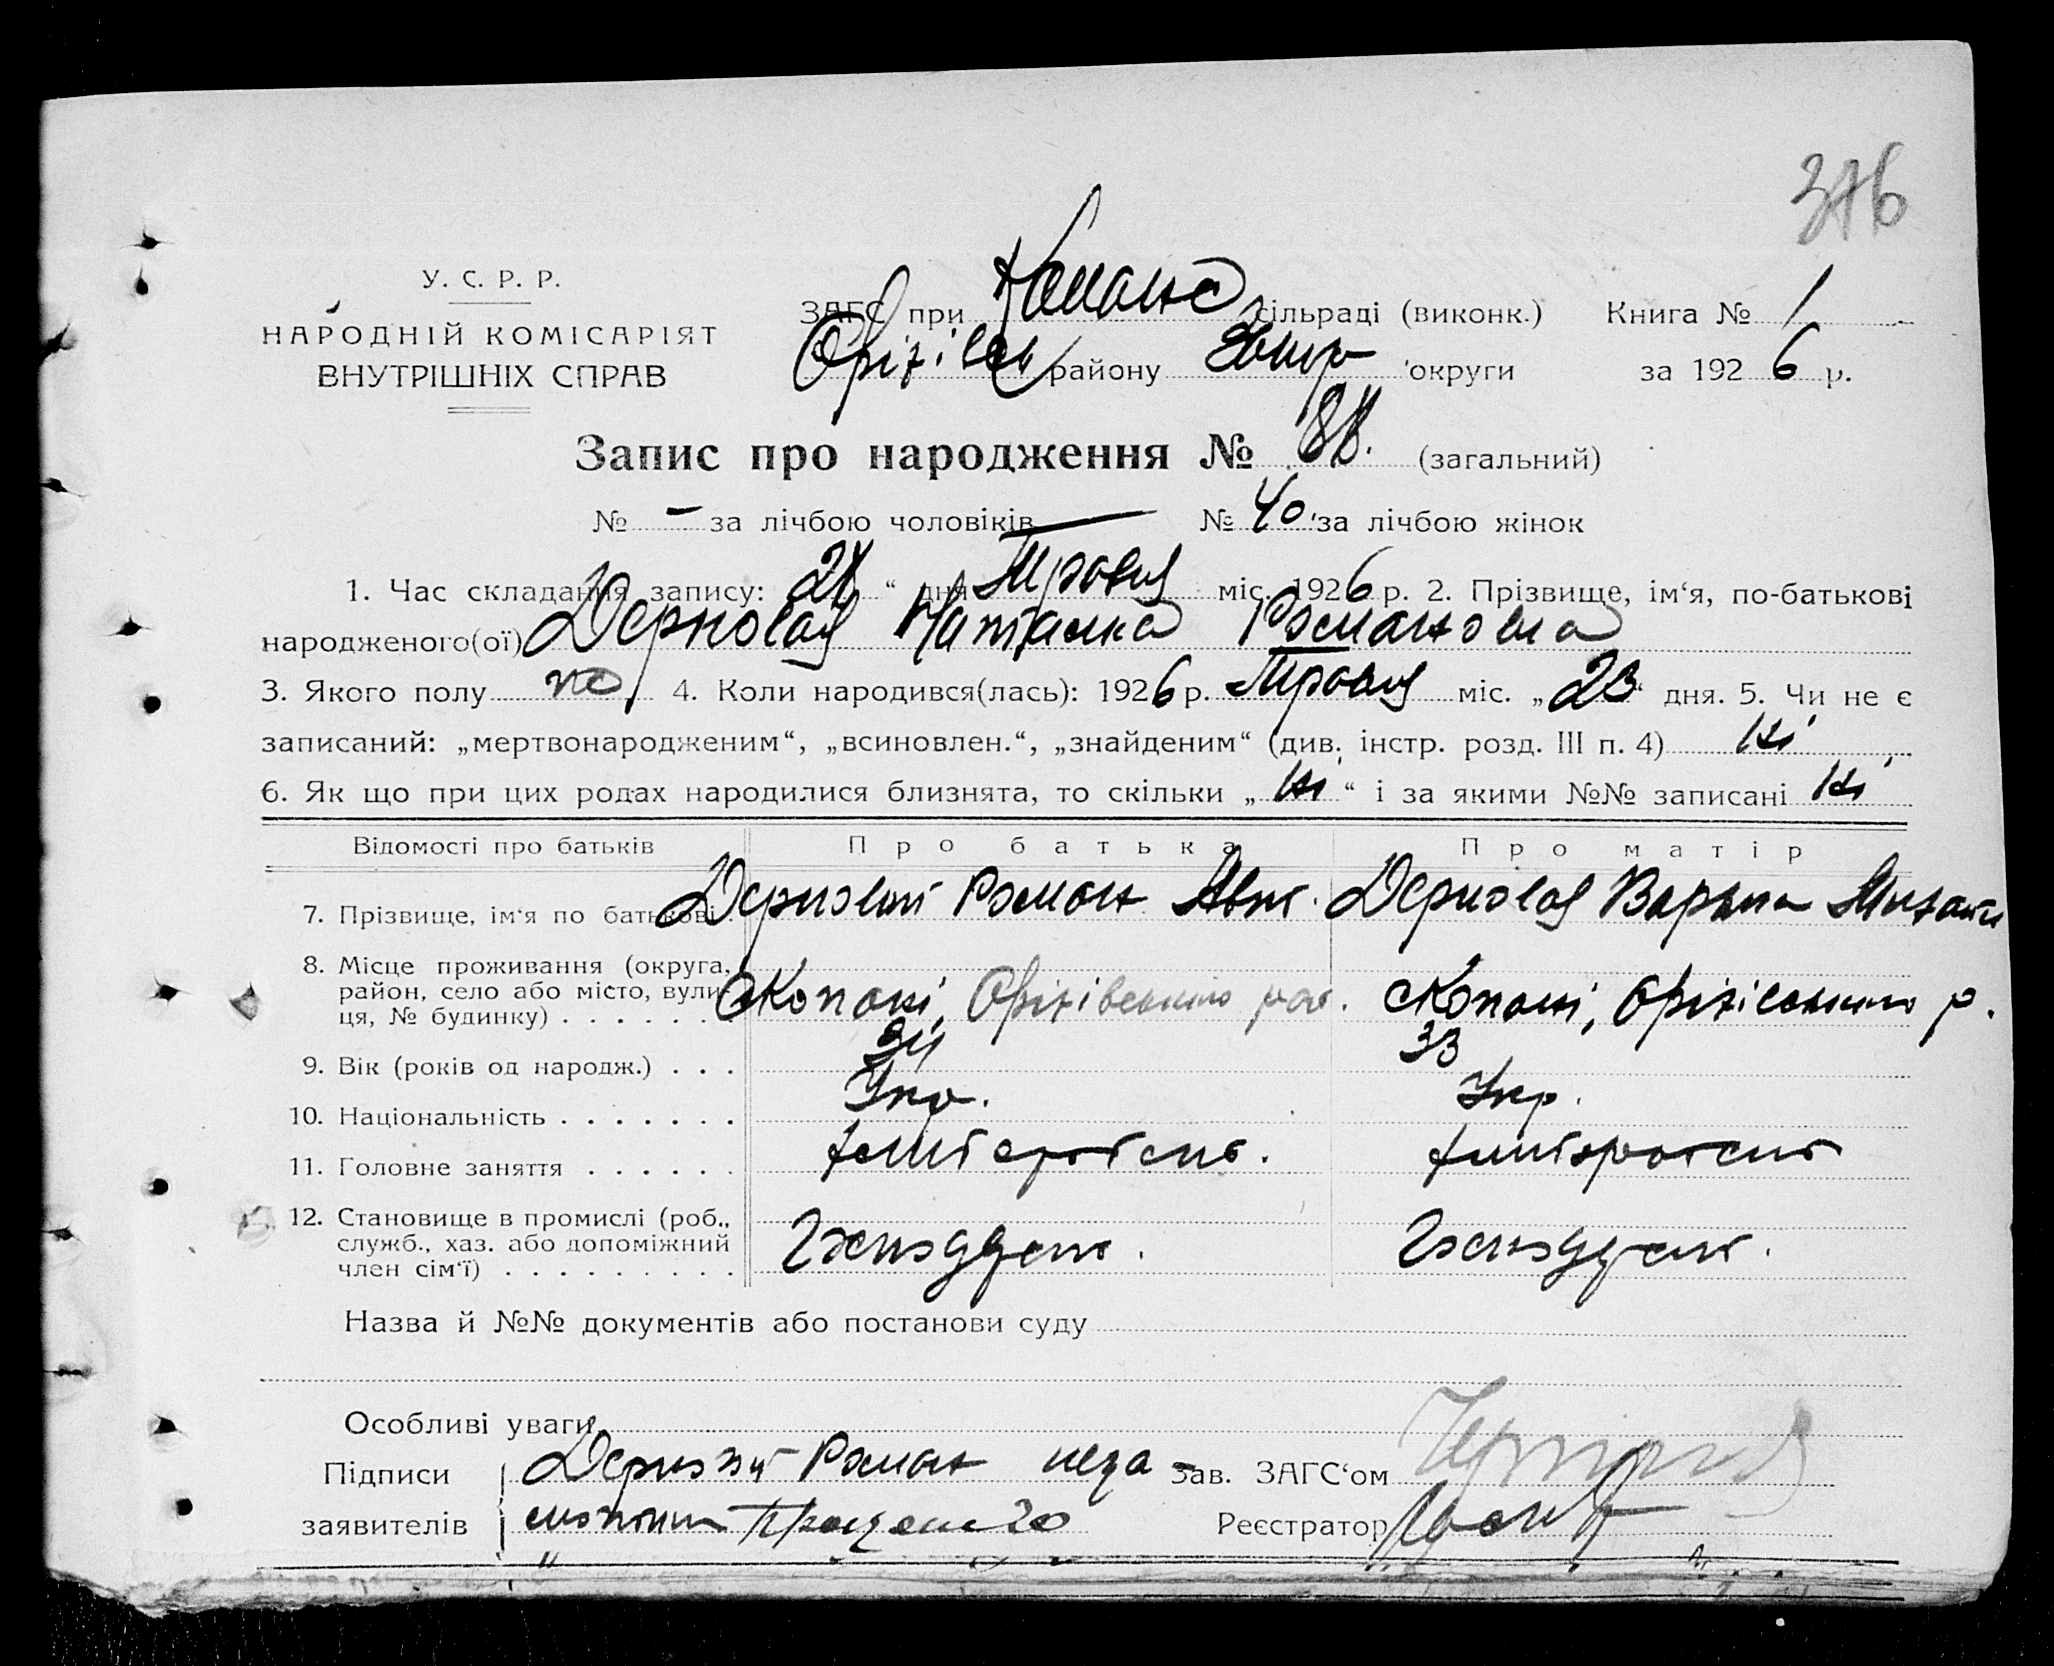 376
У. С. Р. Р.
НАРОДНІЙ КОМІСАРІЯТ
ВНУТРІШНІХ СПРАВ
ЗАГС при сільраді (виконк.) Книга № 1
Оріхівськ району Запор округи за 1926 р.
Запис про народження № 88. (загальний)
№ - за лічбою чоловіків № 40 за лічбою жінок
1. Час складання запису: дня Травня міс. 1926 р. 2. Прізвище, ім‘я, по-батькові
народженого(ої) Дернова Наталка Романовна
3. Якого полу ж 4. Коли народився(лась): 1926 р. Травня міс. „23“ дня. 5. Чи не є
записаний: „мертвонародженим“, „всиновлен.“, „знайденим“ (див. інстр. розд. III п. 4) Ні
6. Як що при цих родах народилися близнята, то скільки „Ні“ і за якими №№ записані Ні
Відомості про батьків Про батька Про матір
7. Прізвище, ім‘я по батькові Роман Варвара
8. Місце проживання (округа, район, село або місто, вулиця, № будинку) Копані, Оріхівського рай. Копані, Оріхівського р.
9. Вік (років од народж.) 34 33
10. Національність Укр. Укр.
11. Головне заняття Хліборобств. Хліборобств
12. Становище в промислі (роб., служб., хаз. або допоміжний член сім‘ї) Господарств. Господарств.
Назва й №№ документів або постанови суду
Особливі уваги
Підписи Роман Зав. ЗАГС‘ом
заявителів Реєстратор